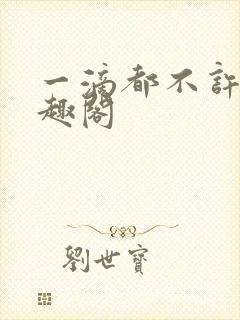 一滴都不許
趣閣
劉世寶